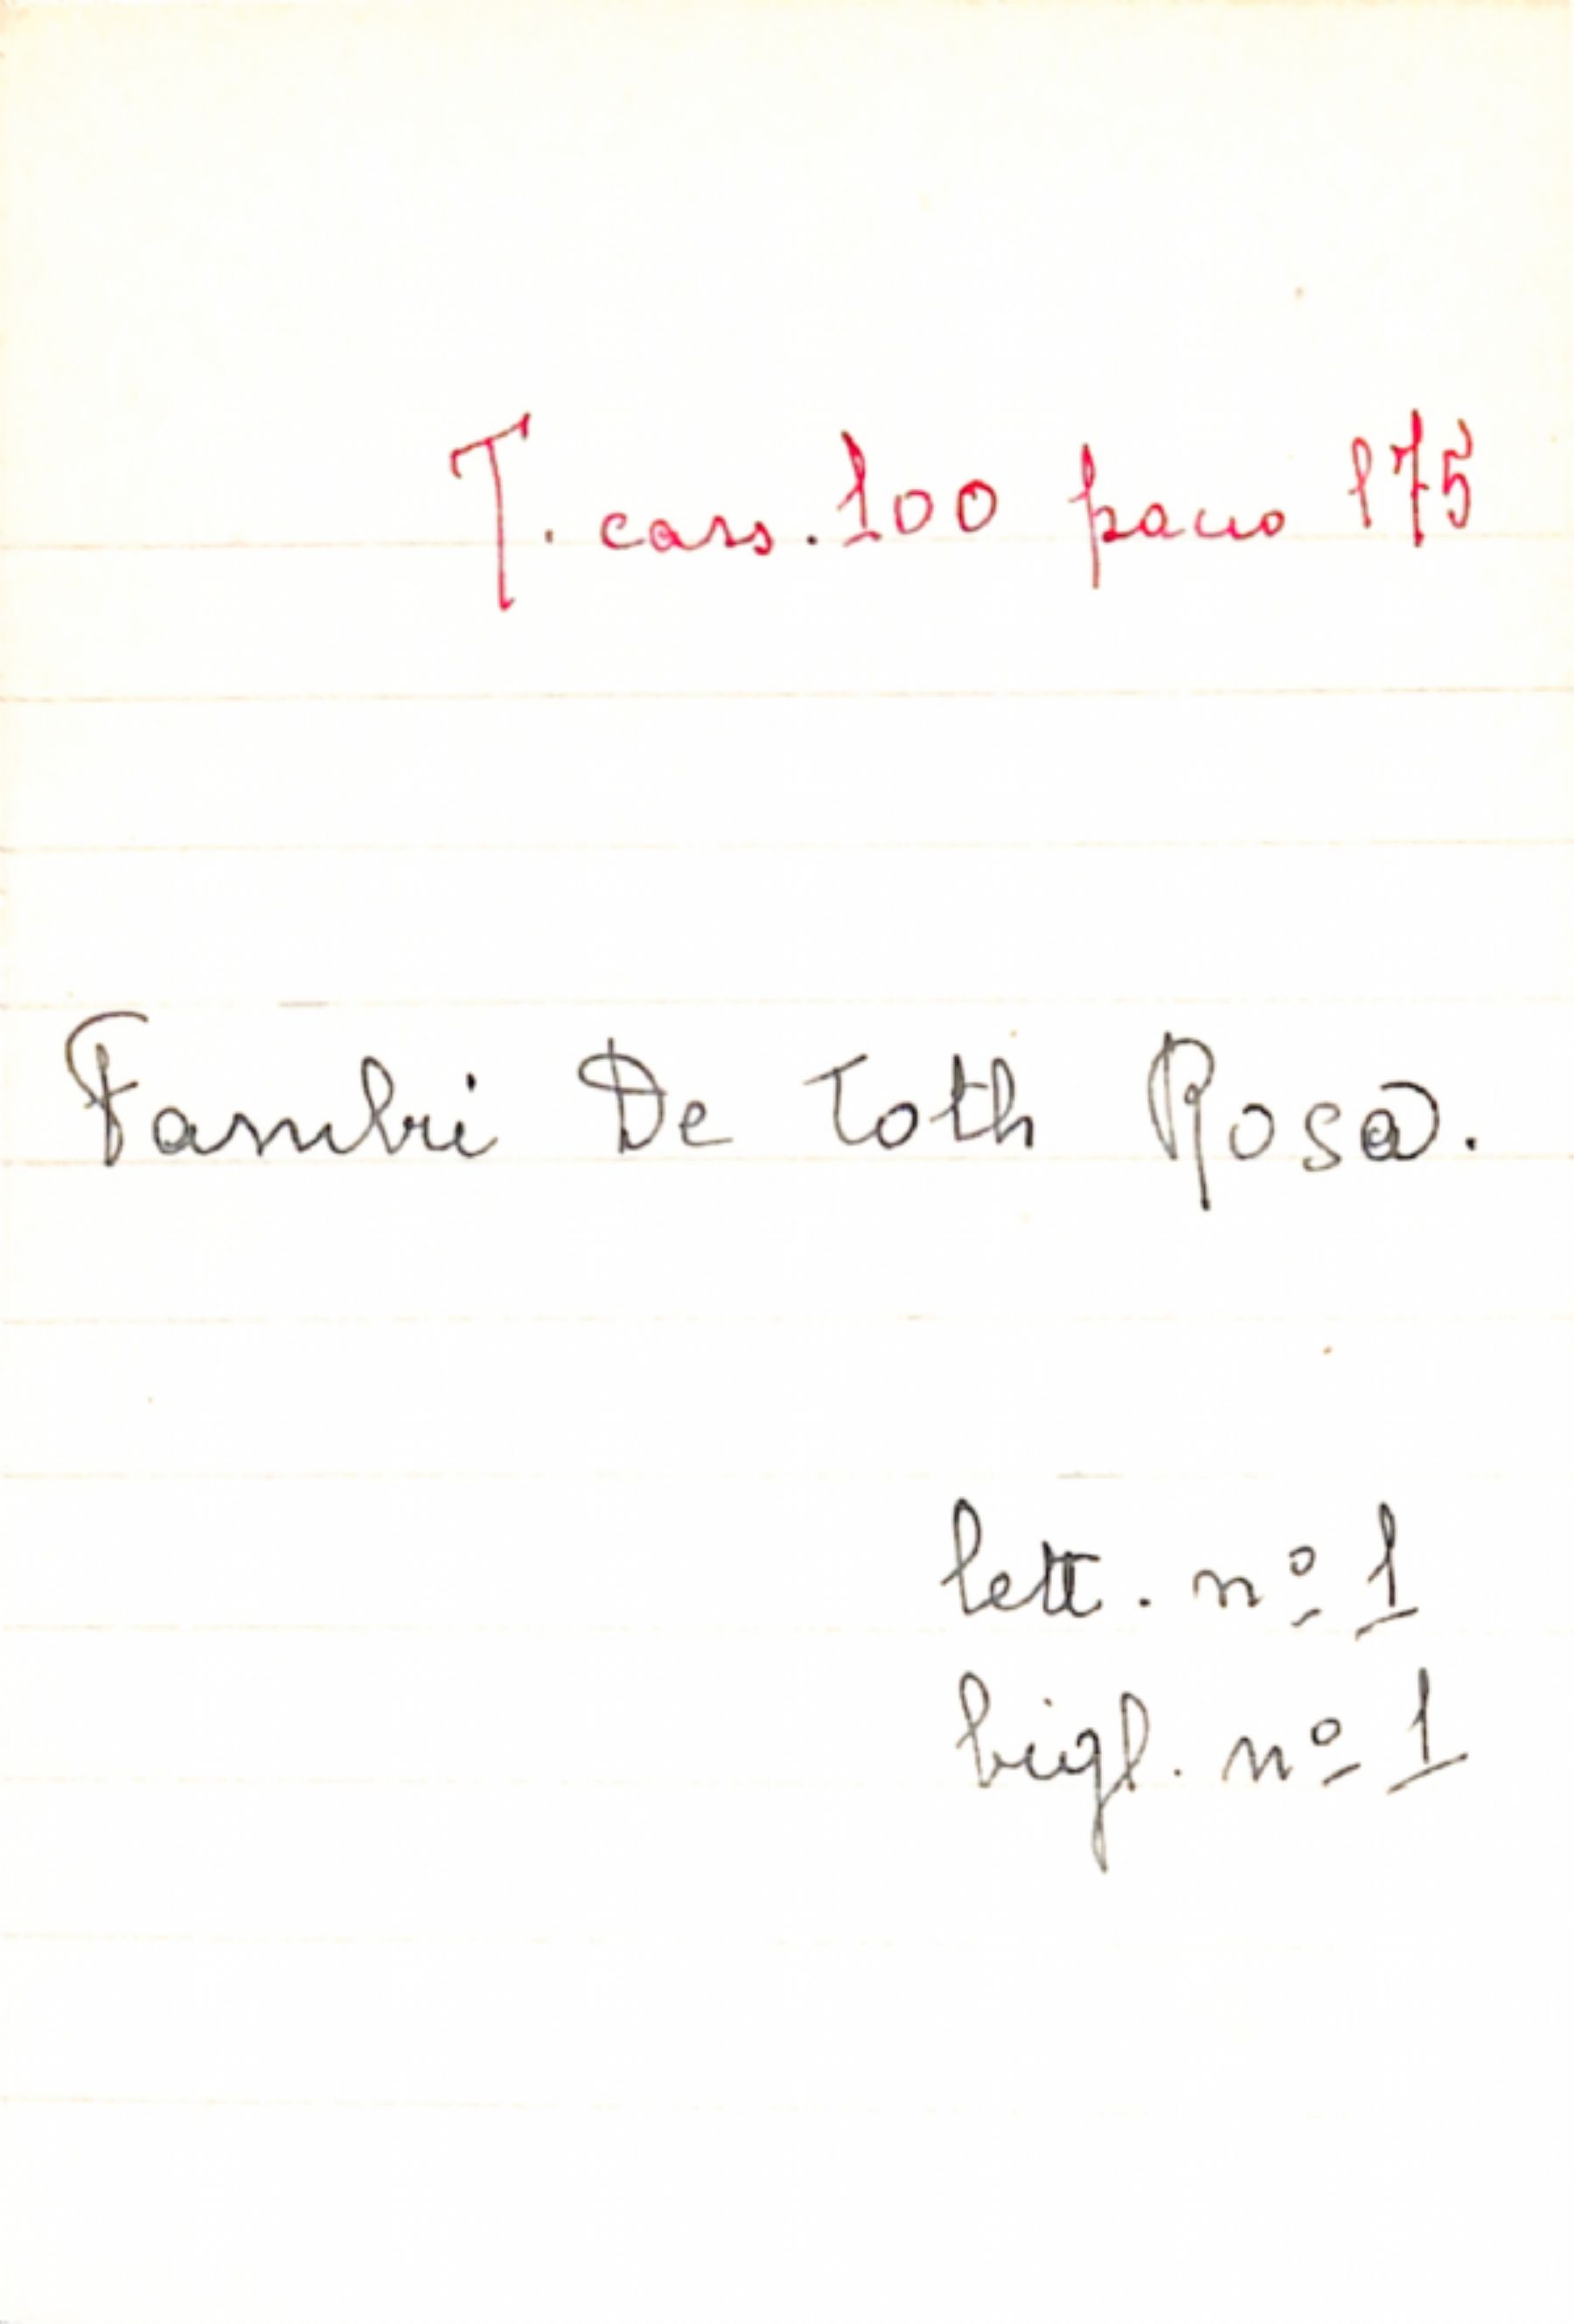 T. cass. 100 pacco 175
Fambri De Toth Rosa.
lett. nº 1
bigl. nº 1